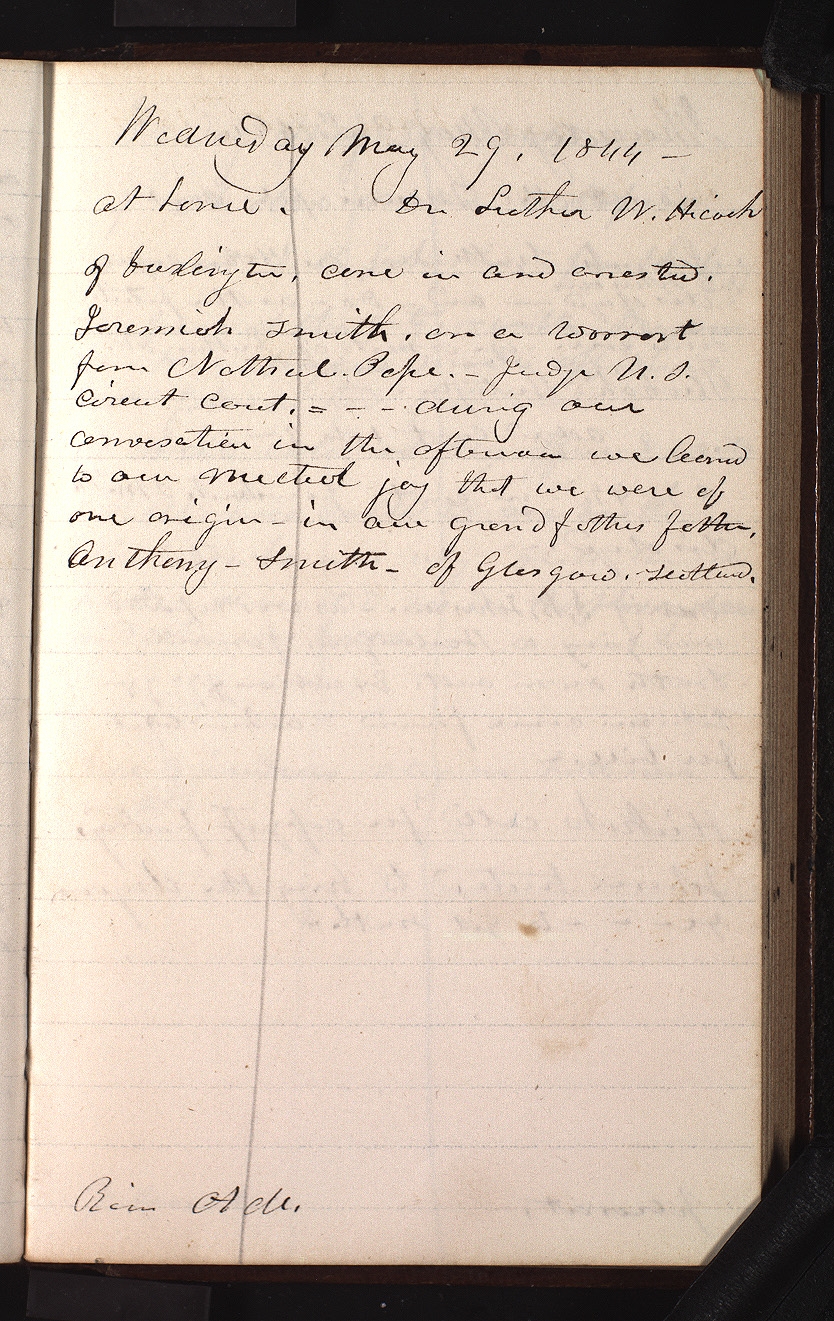 Wednesday May 29. 1844 –
at home. Dr Luther W. Hicock
of Burlington, came in and arrested.
Jeremiah Smith. on a Warrant
from Nathniel. Pope. – Judge U. S.
circuit court. = – – during our
conversation in the afternoon we learnd
to our mutual joy that we were of
one origin – in our grandfathers father,
Anthony – Smith – of Glasgow. Scotland.
Rain